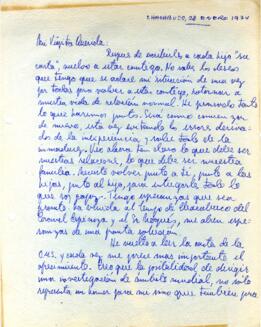 Chacabuco, 28 ENERO 1974
Mi Viejita Querida:
Luego de escribirte a cada hijo "su
carta", vuelvo a estar contigo. No sabes los deseos
que tengo que se aclare mi situación de una vez
por todas para volver a estar contigo, retornar a
nuestra vida de relación normal. He pensado todo lo
que haremos juntos. Será como comenzar
de nuevo, esta vez evitando los errores deriva-
dos de la inexperiencia y sobre todo de la
inmadurez. Veo ahora tan claro lo que debe ser
nuestras relaciones, lo que debe ser nuestra
familia. Necesito volver junto a ti, junto a las
hijas, junto al hijo, para entregarles todo lo
que soy capaz. Tengo esperanzas que sea
pronto. La visita que hizo a Chacabuco del
Coronel Espinoza y el Sr. , me abren espe-
ranzas de una pronta solución.
He vuelto a leer la carta de la
O.M.S. y cada vez me parece mas importante el
ofrecimiento. Creo que la posibilidad de dirigir
una investigación de ámbito mundial, no sólo
representa un honor para mi sino que también para